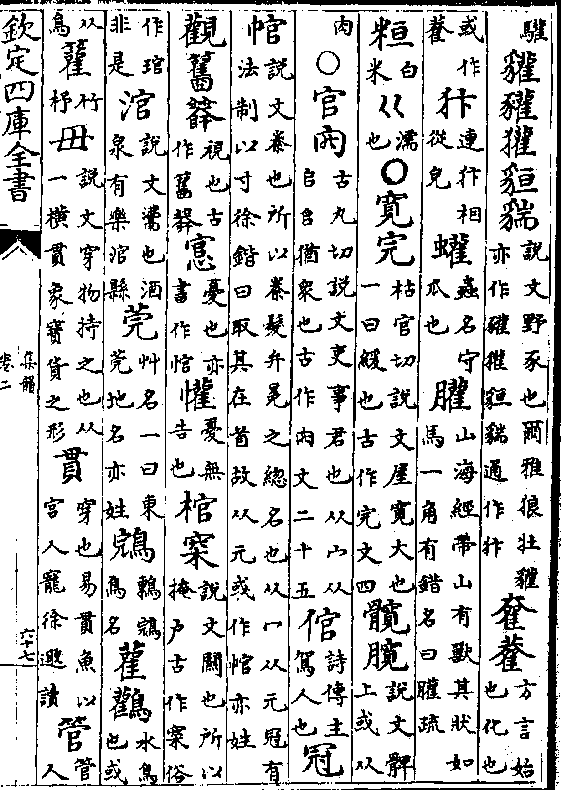 貛獾貆貒說文野豕也爾雅狼牡貛亦作獾貆貒通作犴 方言始也化也
或作 犴連犴相從皃 蠸蟲名守瓜也 臛山海經帶山有獸其狀如馬一角有錯名曰臛疏
白米 巜濡也 ○寬完枯官切說文屋寬大也一曰緩也古作完文四 髖臗說文髀上或从
肉 ○官古丸切說文吏事君也从宀从𠂤𠂤猶衆也古作文二十五 倌詩傳主駕人也 冠
說文絭也所以絭髮弁冕之總名也从冖从元冠有法制以寸徐鍇曰取其在首故从元或作亦姓
觀視也古作 悹憂也亦書作悺 懽憂無告也 棺說文關也所以掩尸古作俗
作琯非是 涫說文也酒泉有樂涫縣 莞艸名一曰東莞地名亦姓 鴅鳥名 雚鸛水鳥也或
从鳥 竹杼 毌說文穿物持之也从一橫貫象寶貨之形 貫穿也易貫魚以宮人寵徐邈讀 管管人
欽定四庫全書
集韻
卷二
六十七